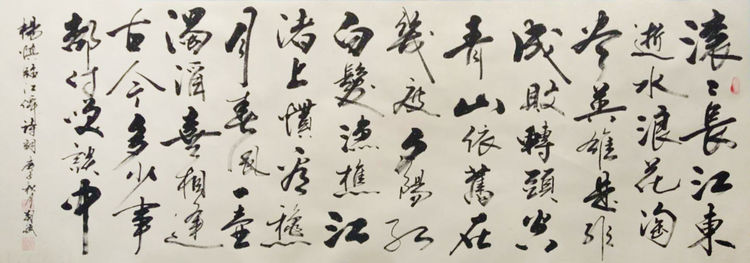 滚〻長江東
逝水浪花淘
尽英雄是非
成敗轉頭空
青山依舊在
幾度夕陽紅
白髮漁樵江
渚上慣看穐
月春風一壺
濁酒喜相逢
古今多少事
都付笑談中
楊慎臨江仙詩詞 庚子秋月